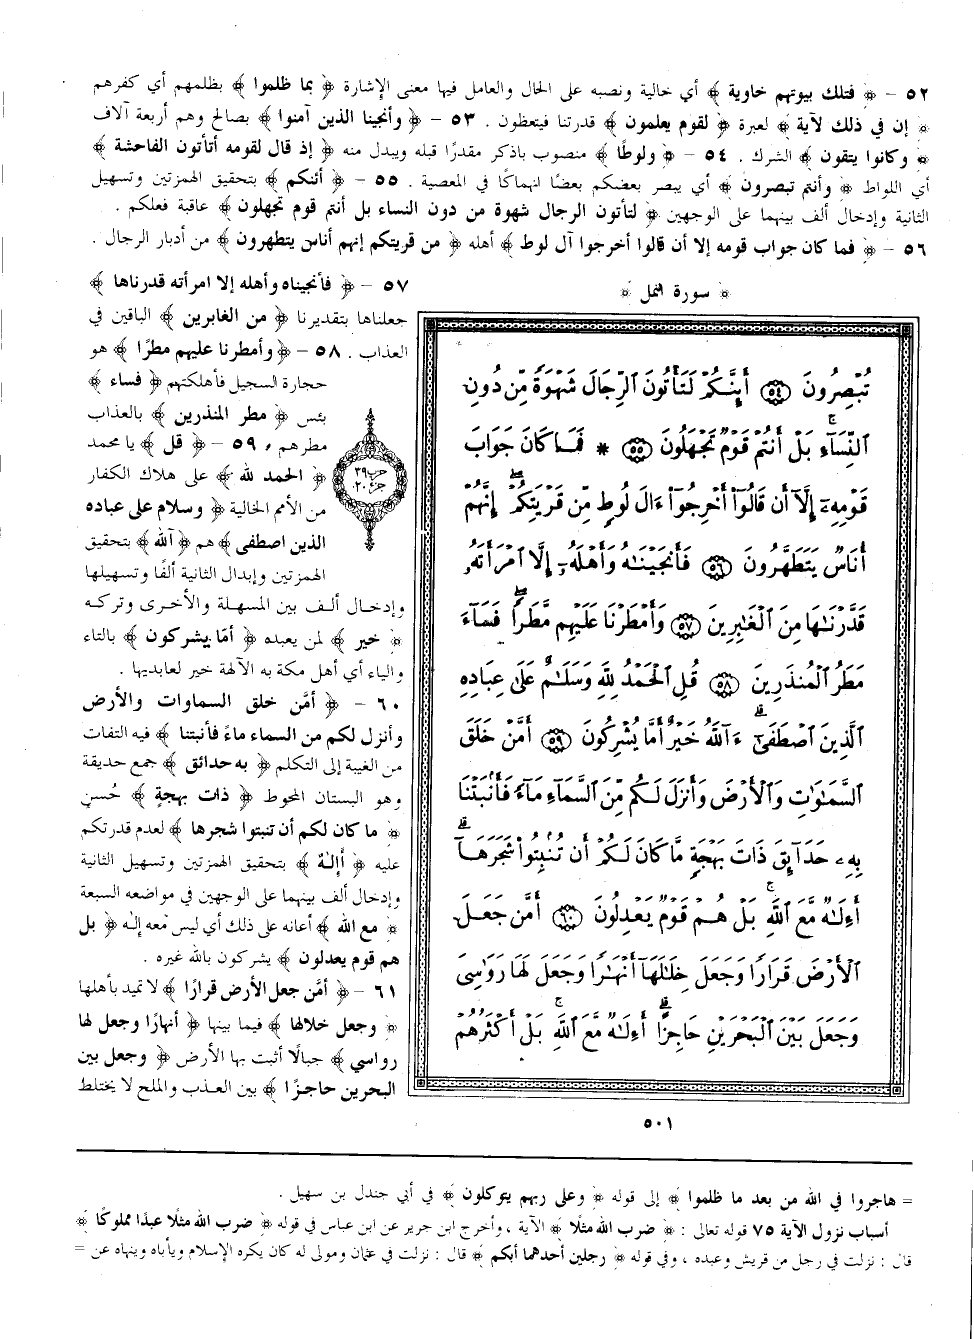 ٥٢ - ﴿ فتلك بيوتهم خاوية ﴾ أي خالية ونصبه على الحال والعامل فيها معنى الإشارة ﴿ بما ظلموا ﴾ بظلمهم أي كفرهم
﴿ إن في ذلك لآية ﴾ لعبرة ﴿ لقوم يعلمون ﴾ قدرتنا فيتعظون . ٥٣ - ﴿ وأنجينا الذين آمنوا ﴾ بصالح وهم أربعة آلاف
﴿ وكانوا يتقون ﴾ الشرك . ٥٤ - ﴿ ولوطًا ﴾ منصوب باذكر مقدرًا قبله ويبدل منه ﴿ إذ قال لقومه أتأتون الفاحشة ﴾
أي اللواط ﴿ وأنتم تبصرون ﴾ أي يبصر بعضكم بعضًا انهماكًا في المعصية . ٥٥ - ﴿ أئنكم ﴾ بتحقيق الهمزتين وتسهيل
الثانية وإدخال ألف بينهما على الوجهين ﴿ لتأتون الرجال شهوة من دون النساء بل أنتم قوم تجهلون ﴾ عاقبة فعلكم .
٥٦ - ﴿ فما كان جواب قومه إلا أن قالوا أخرجوا آل لوط ﴾ أهله ﴿ من قريتكم إنهم أناس يتطهرون ﴾ من أدبار الرجال .
﴿ سورة النمل ﴾
تُبْصِرُونَ ٥٤ أَئِنَّكُمْ لَتَأْتُونَ ٱلرِّجَالَ شَهْوَةً مِّن دُونِ
ٱلنِّسَآءِ ۚ بَلْ أَنتُمْ قَوْمٌ تَجْهَلُونَ ٥٥ * فَمَا كَانَ جَوَابَ
قَوْمِهِۦٓ إِلَّآ أَن قَالُوٓا۟ أَخْرِجُوٓا۟ ءَالَ لُوطٍ مِّن قَرْيَتِكُمْ ۖ إِنَّهُمْ
أُنَاسٌ يَتَطَهَّرُونَ ٥٦ فَأَنجَيْنَـٰهُ وَأَهْلَهُۥٓ إِلَّا ٱمْرَأَتَهُۥ
قَدَّرْنَـٰهَا مِنَ ٱلْغَـٰبِرِينَ ٥٧ وَأَمْطَرْنَا عَلَيْهِم مَّطَرًا ۖ فَسَآءَ
مَطَرُ ٱلْمُنذَرِينَ ٥٨ قُلِ ٱلْحَمْدُ لِلَّهِ وَسَلَـٰمٌ عَلَىٰ عِبَادِهِ
ٱلَّذِينَ ٱصْطَفَىٰٓ ۗ ءَآللَّهُ خَيْرٌ أَمَّا يُشْرِكُونَ ٥٩ أَمَّنْ خَلَقَ
ٱلسَّمَـٰوَٰتِ وَٱلْأَرْضَ وَأَنزَلَ لَكُم مِّنَ ٱلسَّمَآءِ مَآءً فَأَنۢبَتْنَا
بِهِۦ حَدَآئِقَ ذَاتَ بَهْجَةٍ مَّا كَانَ لَكُمْ أَن تُنۢبِتُوا۟ شَجَرَهَآ ۗ
أَءِلَـٰهٌ مَّعَ ٱللَّهِ ۚ بَلْ هُمْ قَوْمٌ يَعْدِلُونَ ٦٠ أَمَّن جَعَلَ
ٱلْأَرْضَ قَرَارًا وَجَعَلَ خِلَـٰلَهَآ أَنْهَـٰرًا وَجَعَلَ لَهَا رَوَٰسِىَ
وَجَعَلَ بَيْنَ ٱلْبَحْرَيْنِ حَاجِزًا ۗ أَءِلَـٰهٌ مَّعَ ٱللَّهِ ۚ بَلْ أَكْثَرُهُمْ
حزب ٣٩
جزء ٢٠
٥٧ - ﴿ فأنجيناه وأهله إلا امرأته قدرناها ﴾
جعلناها بتقديرنا ﴿ من الغابرين ﴾ الباقين في
العذاب . ٥٨ - ﴿ وأمطرنا عليهم مطرًا ﴾ هو
حجارة السجيل فأهلكتهم ﴿ فساء ﴾
بئس ﴿ مطر المنذرين ﴾ بالعذاب
مطرهم . ٥٩ - ﴿ قل ﴾ يا محمد
﴿ الحمد لله ﴾ على هلاك الكفار
من الأمم الخالية ﴿ وسلام على عباده
الذين اصطفى ﴾ هم ﴿ آلله ﴾ بتحقيق
الهمزتين وإبدال الثانية ألفًا وتسهيلها
وإدخال ألف بين المسهلة والأخرى وتركه
﴿ خير ﴾ لمن يعبده ﴿ أمّا يشركون ﴾ بالتاء
والياء أي أهل مكة به الآلهة خير لعابديها .
٦٠ - ﴿ أمّن خلق السماوات والأرض
وأنزل لكم من السماء ماءً فأنبتنا ﴾ فيه التفات
من الغيبة إلى التكلم ﴿ به حدائق ﴾ جمع حديقة
وهو البستان المحوط ﴿ ذات بهجةٍ ﴾ حُسنٍ
﴿ ما كان لكم أن تنبتوا شجرها ﴾ لعدم قدرتكم
عليه ﴿ أإلهٌ ﴾ بتحقيق الهمزتين وتسهيل الثانية
وإدخال ألف بينهما على الوجهين في مواضعه السبعة
﴿ مع الله ﴾ أعانه على ذلك أي ليس معه إله ﴿ بل
هم قوم يعدلون ﴾ يشركون بالله غيره .
٦١ - ﴿ أمّن جعل الأرض قرارًا ﴾ لا تميد بأهلها
﴿ وجعل خلالها ﴾ فيما بينها ﴿ أنهارًا وجعل لها
رواسي ﴾ جبالًا أثبت بها الأرض ﴿ وجعل بين
البحرين حاجزًا ﴾ بين العذب والملح لا يختلط
٥٠١
= هاجروا في الله من بعد ما ظلموا ﴾ إلى قوله ﴿ وعلى ربهم يتوكلون ﴾ في أبي جندل بن سهيل .
أسباب نزول الآية ٧٥ قوله تعالى : ﴿ ضرب الله مثلًا ﴾ الآية ، وأخرج ابن جرير عن ابن عباس في قوله ﴿ ضرب الله مثلًا عبدًا مملوكًا ﴾
قال : نزلت في رجل من قريش وعبده ، وفي قوله ﴿ رجلين أحدهما أبكم ﴾ قال : نزلت في عثمان ومولى له كان يكره الإسلام ويأباه وينهاه عن =